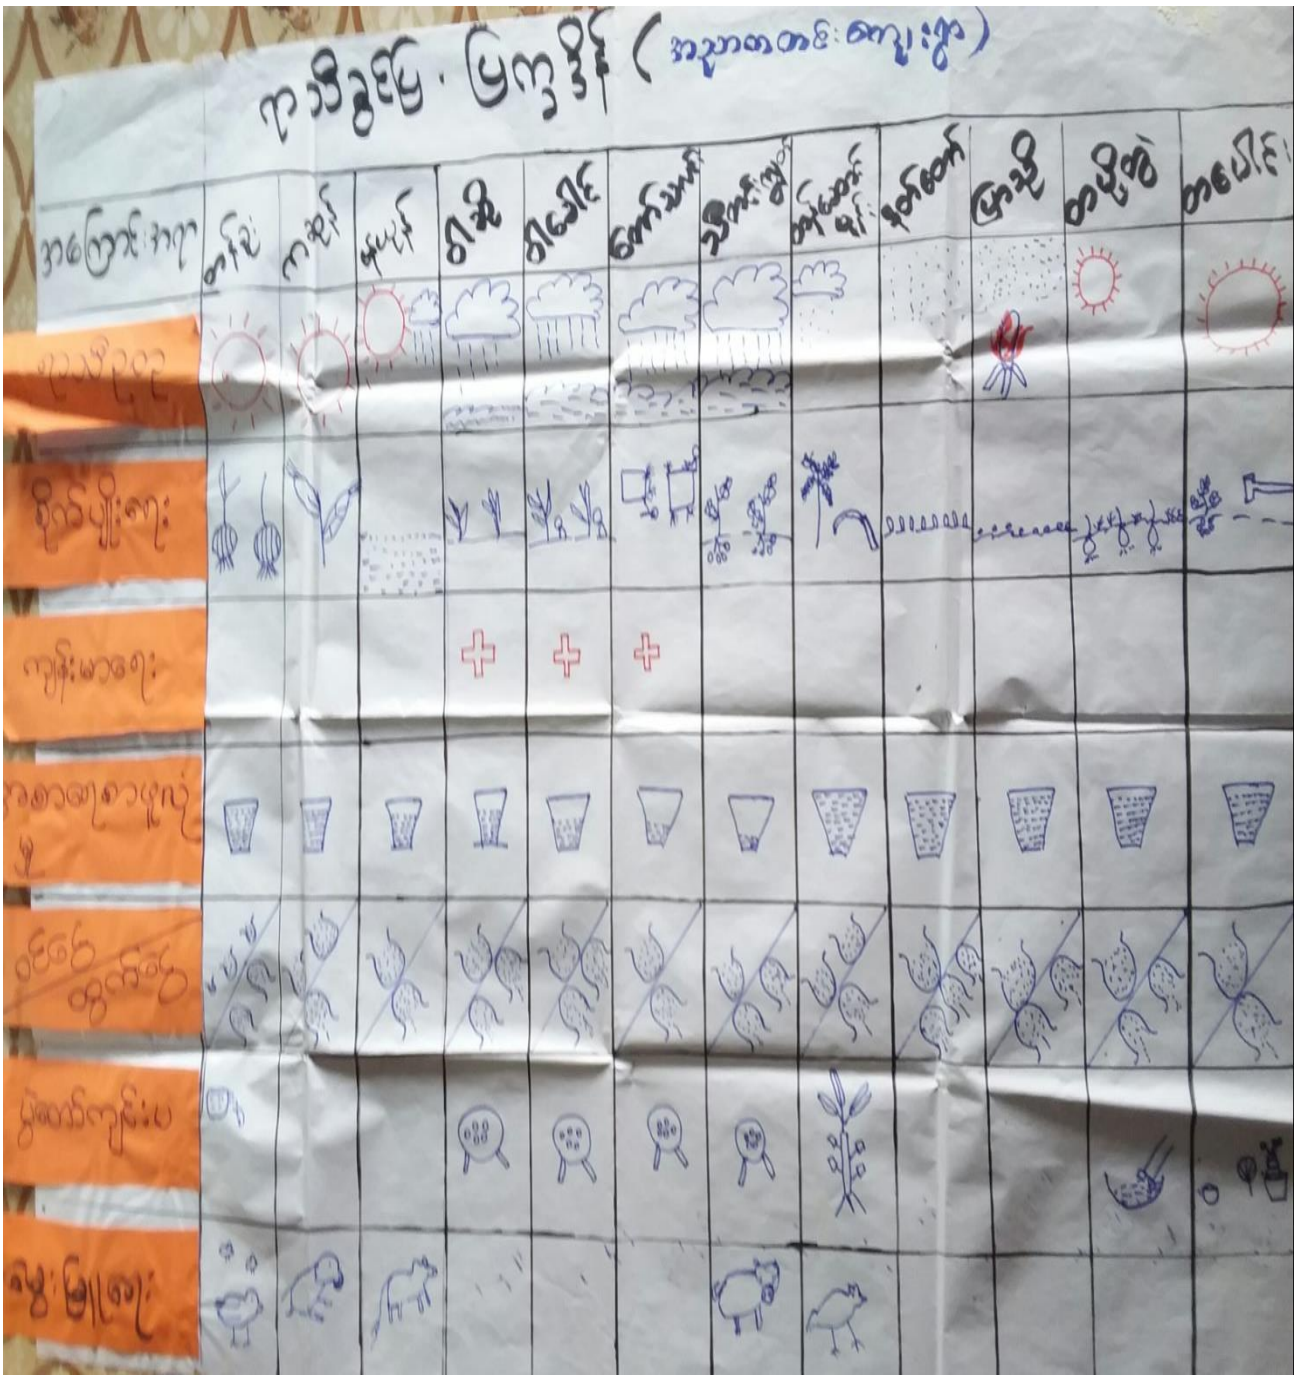 ရာသီခွင်ပြ ပြက္ခဒိန် ( အညာတတင်းကျေးရွာ )
အကြောင်းအရာ တန်ခူး ကဆုန် နယုန် ဝါဆို ဝါခေါင် တော်သလင်း သီတင်းကျွတ် တန်ဆောင်မုန်း နတ်တော် ပြာသို တပို့တွဲ တပေါင်း
ရာသီဥတု
စိုက်ပျိုးရေး
ကျန်းမာရေး
အစားရေစာဖူလုံ
မှု
ဝင်ငွေ
ထွက်ငွေ
ပွဲတော်ကျင်းပ
မွေးမြူရေး